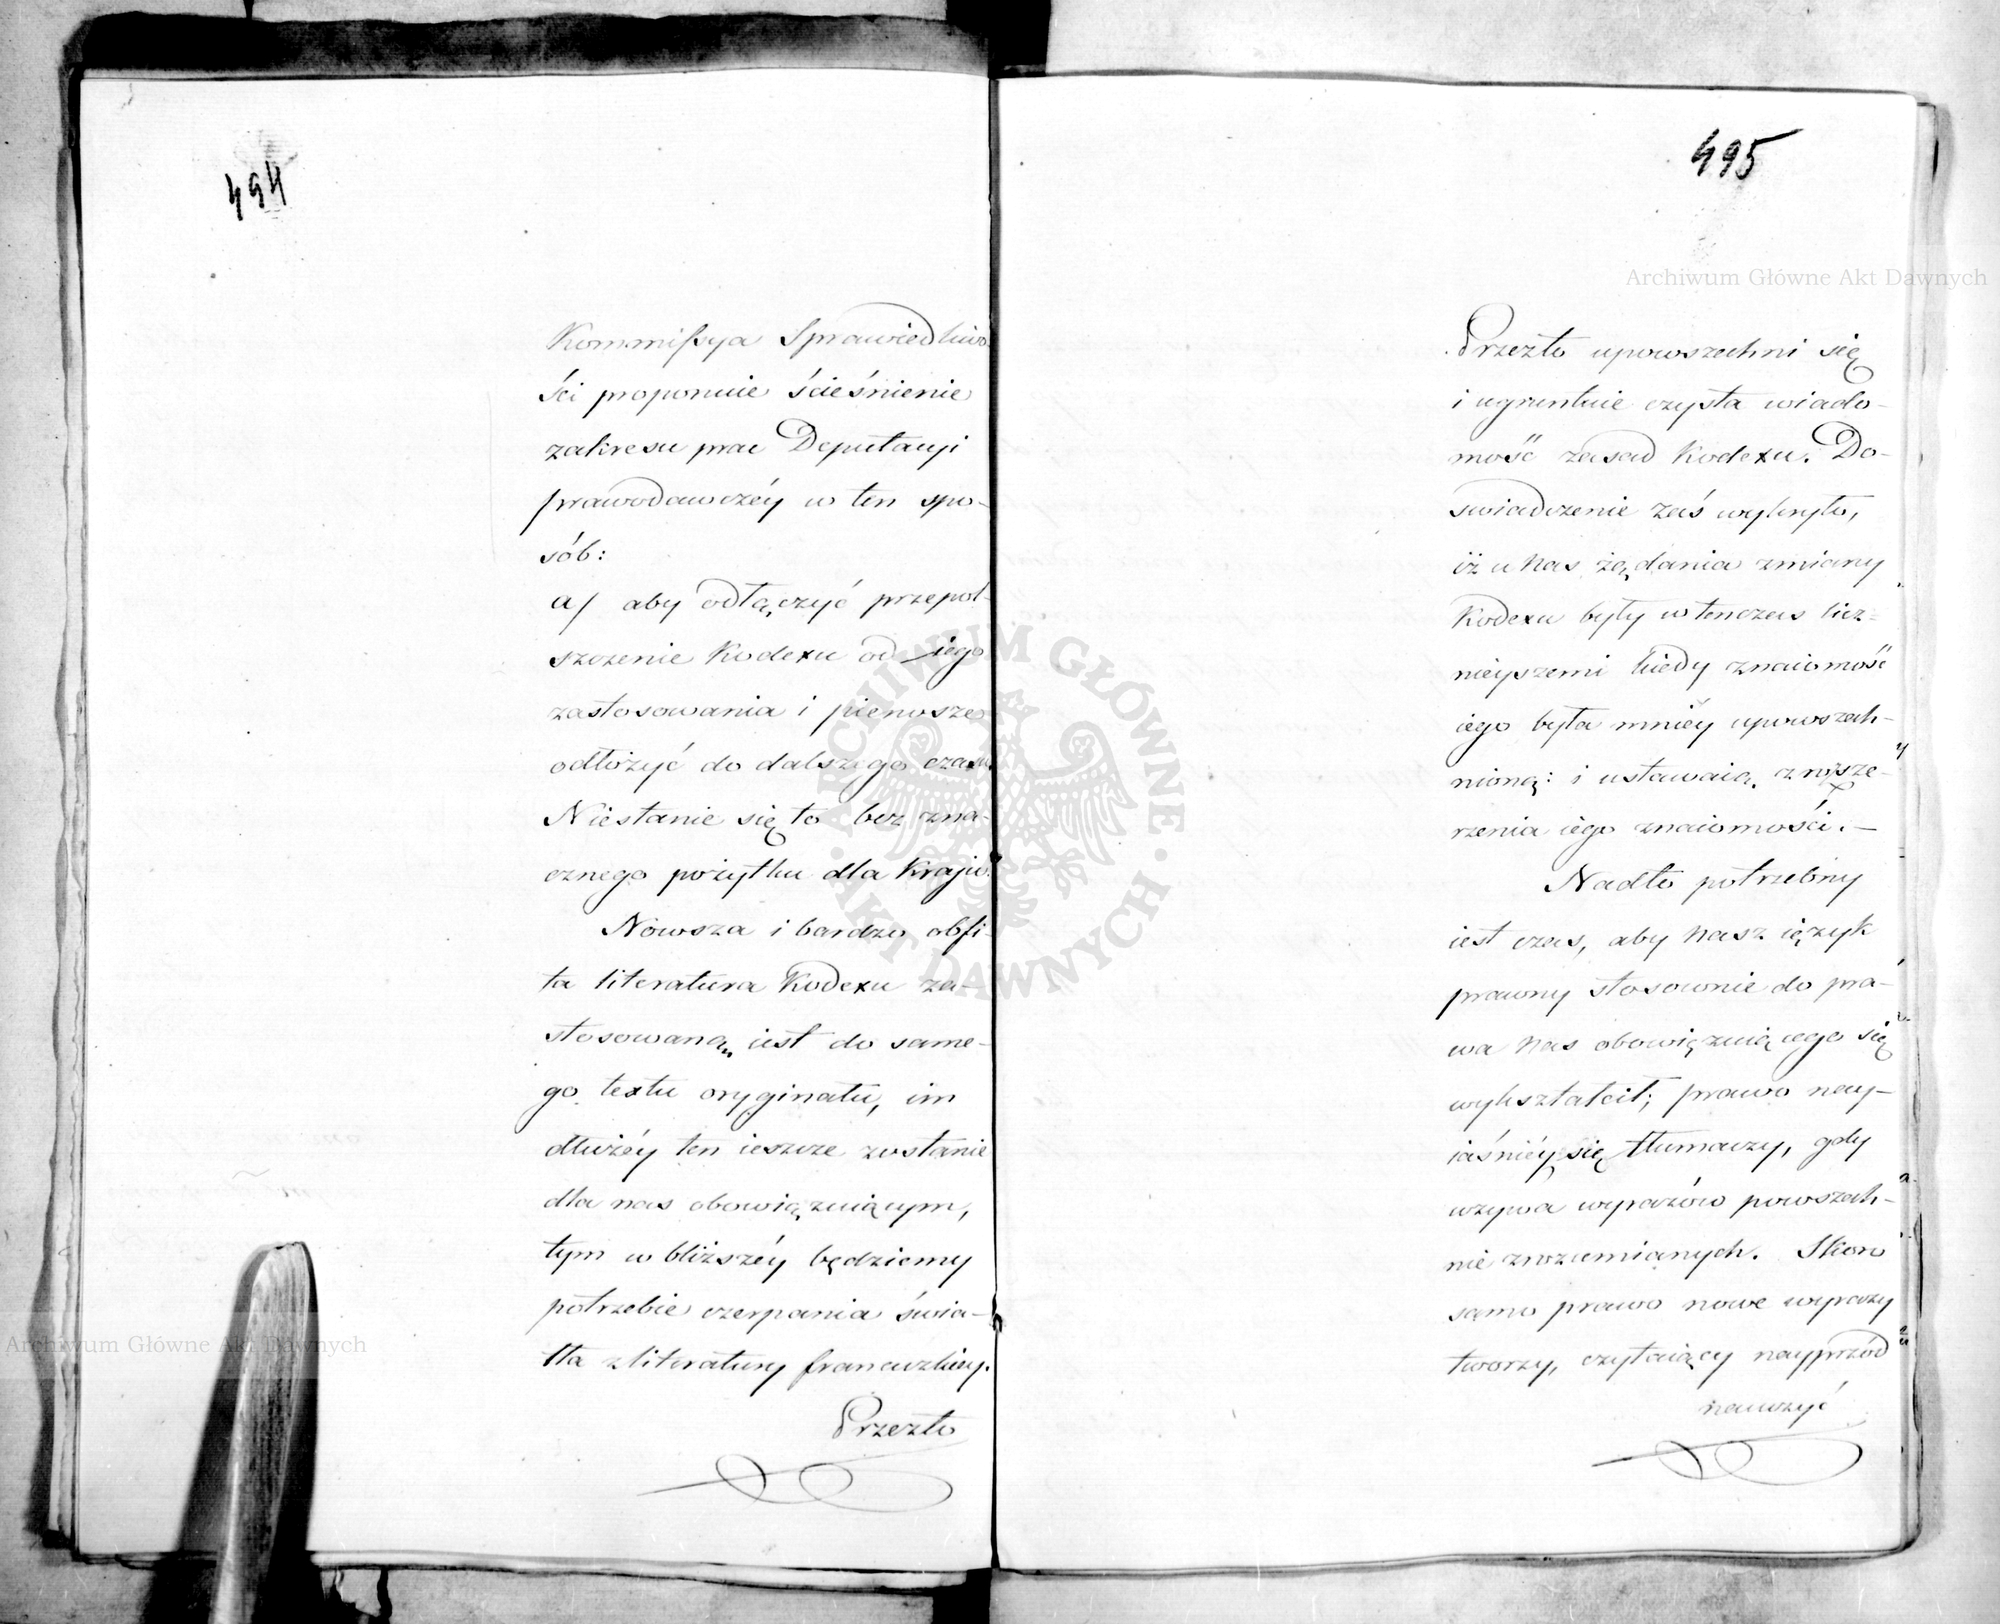 494
Kommißya Sprawiedliwo
ści proponuie ścieśnienie
zakresu prac Deputacyi
prawodawczéy w ten spo-
sób:
a/ aby odłączyć przepol-
szczenie Kodexu od iego
zastosowania i pierwsze
odłożyć do dalszego czasu
Niestanie się to bez zna-
cznego pożytku dla Kraju.
Nowsza i bardzo obfi-
ta literatura Kodexu za-
stosowaną iest do same-
go textu oryginału, im
dłużéy ten ieszcze zostanie
dla nas obowiązuiącym,
tym w bliższéy będziemy
potrzebie czerpania świa-
tła z literatury francuzkiey.
Przezto
495
Przezto upowszechni się
i ugruntuie czysta wiado-
mość zasad Kodexu. Do-
swiadczenie zaś wykryło,
iż u nas żądania zmiany
Kodexu były wtenczas licz-
nieyszemi kiedy znaiomość
iego była mniéy upowszech-
nioną: i ustawaią z rozsze-
rzenia iego znaiomości. —
Nadto potrzebny
iest czas, aby nasz ięzyk
prawny stosownie do pra-
wa nas obowiązuiącego się
wykształcił; prawo nay-
iaśniéy się tłumaczy, gdy
używa wyrazów powszech-
nie zrozumianych. Skoro
samo prawo nowe wyrazy
tworzy, czytaiący nayprzód
nauczyć
Archiwum Główne Akt Dawnych
Archiwum Główne Akt Dawnych
ARCHIWUM GŁÓWNE
AKT DAWNYCH